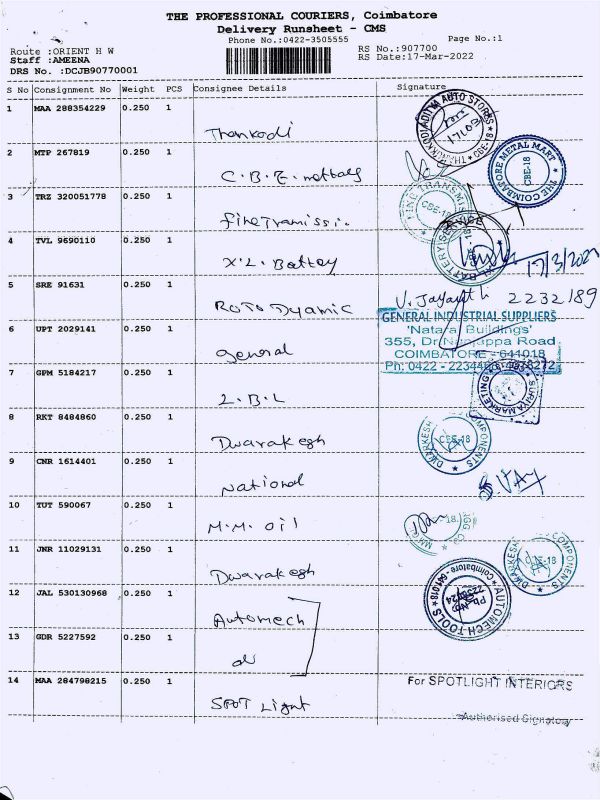 THE PROFESSIONAL COURIERS, Coimbatore
Delivery Runsheet - CMS
Phone No.:0422-3505555
Page No.:1
Route :ORIENT H W
RS No.:907700
Staff :AMEENA
RS Date:17-Mar-2022
DRS No. :DCJB90770001
S No Consignment No Weight PCS Consignee Details Signature
1 MAA 288354229 0.250 1
Thankodi
2 MTP 267819 0.250 1
THE COIMBATORE METAL MART
CBE-18
3 TRZ 320051778 0.250 1
4 TVL 9690110 0.250 1
X.L. Battey
5 SRE 91631 0.250 1
V. Jayanth 2232189
Roto Dyamic
GENERAL INDUSTRIAL SUPPLIERS
6 UPT 2029141 0.250 1
355, Dr Nanjappa Road
general
COIMBATORE - 641018
7 GPM 5184217 0.250 1
L.B.L
SURIYA MARKETING
8 RKT 8484860 0.250 1
Dwarakesh
DWARKESH COMPONENTS
CBE-18
9 CNR 1614401 0.250 1
National
10 TUT 590067 0.250 1
M.M. oil
11 JNR 11029131 0.250 1
Dwarakesh
DWARKESH COMPONENTS
CBE-18
12 JAL 530130968 0.250 1
Automech
AUTOMECH TOOLS
Coimbatore - 641018
13 GDR 5227592 0.250 1
do
14 MAA 284798215 0.250 1
For SPOTLIGHT INTERIORS
SPOT Light
Authorised Signatory